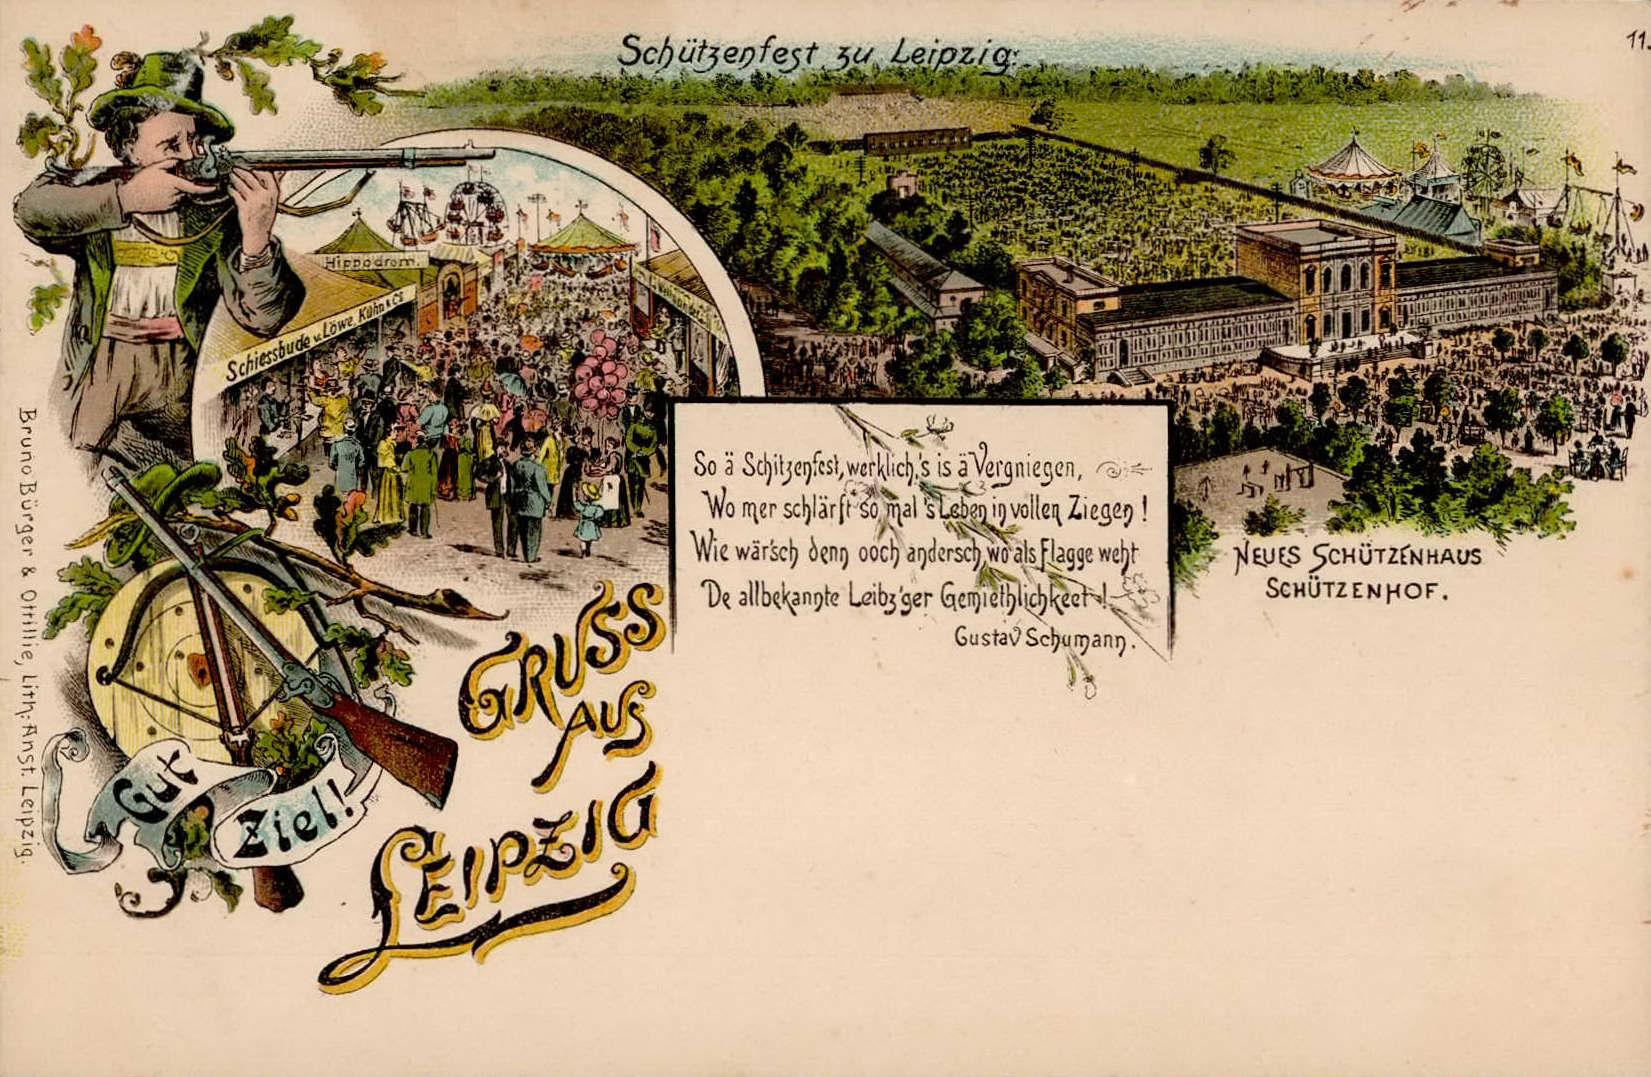 11.
Schützenfest zu Leipzig:
Hippodrom.
Schiessbude v. Löwe, Kühn & Co
So ä Schitzenfest, werklich,'s is ä Vergniegen,
Wo mer schlärft so mal 's Leben in vollen Ziegen!
Wie wär'sch denn ooch andersch, wo als Flagge weht
De allbekannte Leibz'ger Gemiethlichkeet!
Gustav Schumann.
Neues Schützenhaus
Schützenhof.
Gruss
aus
Leipzig
Gut
Ziel!
Bruno Bürger & Ottillie, Lith: Anst. Leipzig.